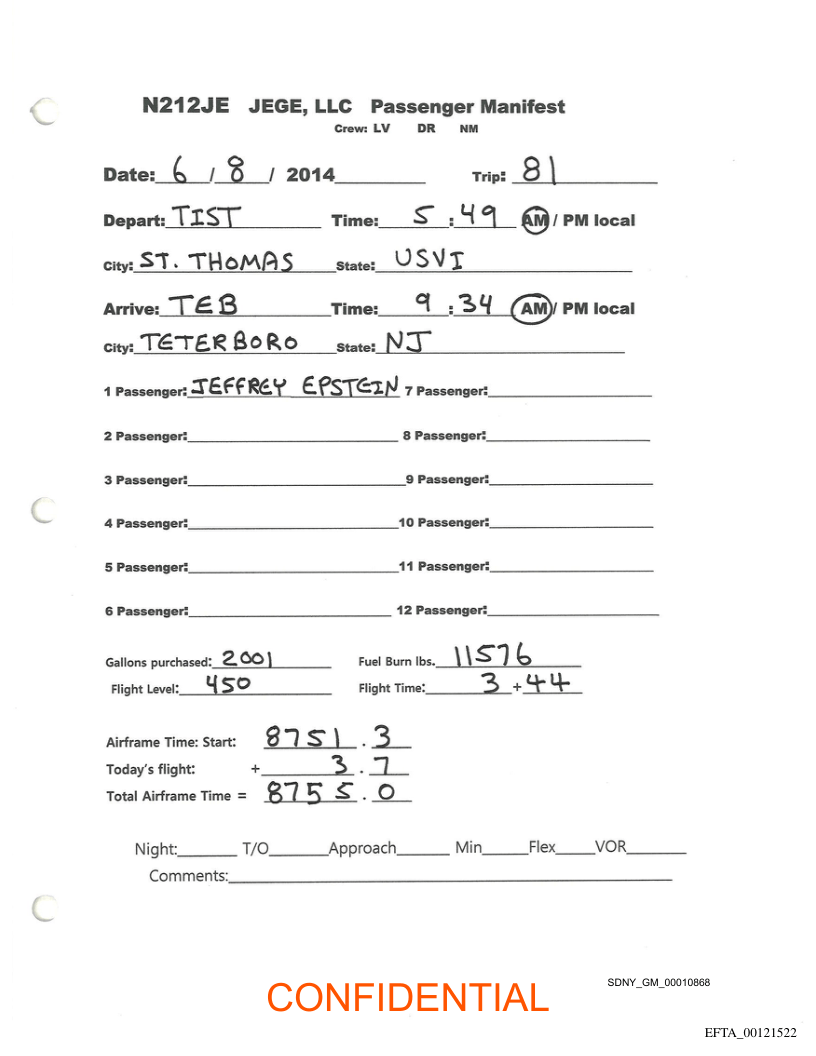 N212JE JEGE, LLC Passenger Manifest
Crew: LV DR NM
Date: 6 / 8 / 2014 Trip: 81
Depart: TIST Time: 5 : 49 AM / PM local
City: ST. THOMAS State: USVI
Arrive: TEB Time: 9 : 34 AM / PM local
City: TETERBORO State: NJ
1 Passenger: JEFFREY EPSTEIN 7 Passenger:
2 Passenger: 8 Passenger:
3 Passenger: 9 Passenger:
4 Passenger: 10 Passenger:
5 Passenger: 11 Passenger:
6 Passenger: 12 Passenger:
Gallons purchased: 2001 Fuel Burn lbs. 11576
Flight Level: 450 Flight Time: 3 + 44
Airframe Time: Start: 8751 . 3
Today's flight: + 3 . 7
Total Airframe Time = 8755 . 0
Night: T/O Approach Min Flex VOR
Comments:
SDNY_GM_00010868
CONFIDENTIAL
EFTA_00121522